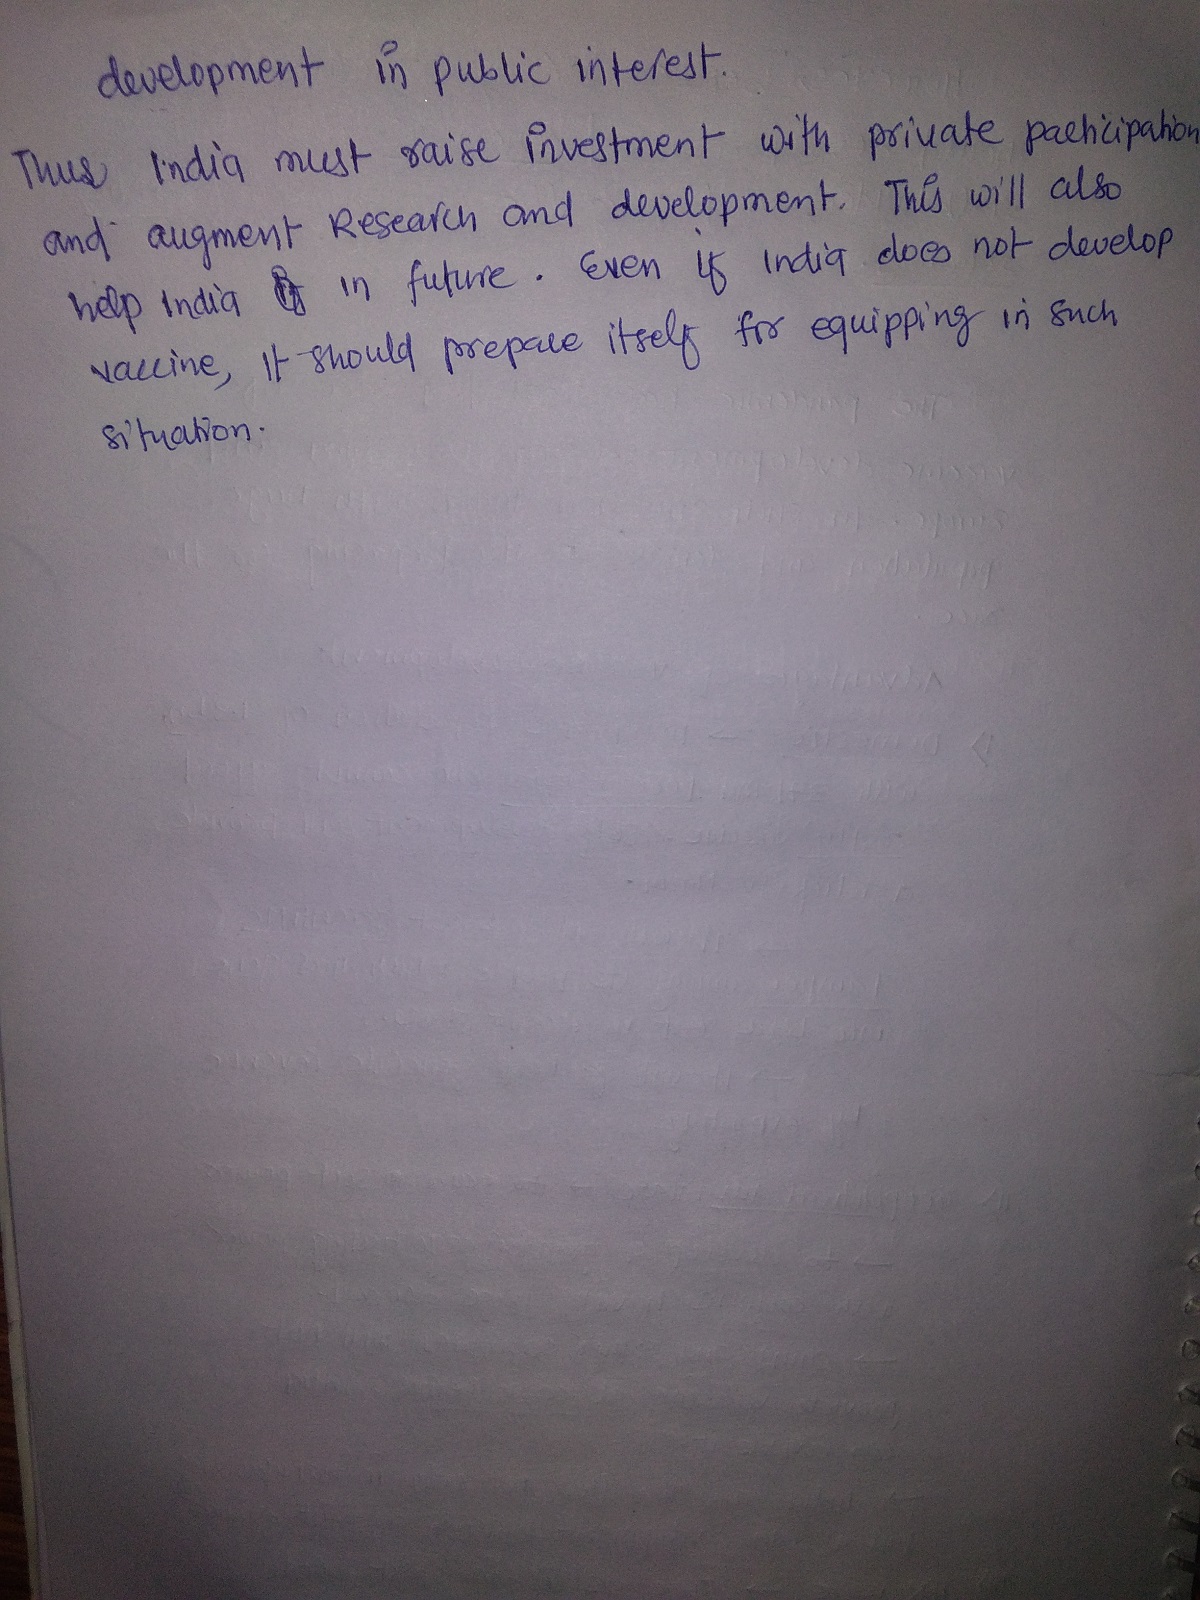 development in public interest.
Thus India must raise investment with private participation
and augment Research and development. This will also
help India in future. Even if India does not develop
vaccine, it should prepare itself for equipping in such
situation.